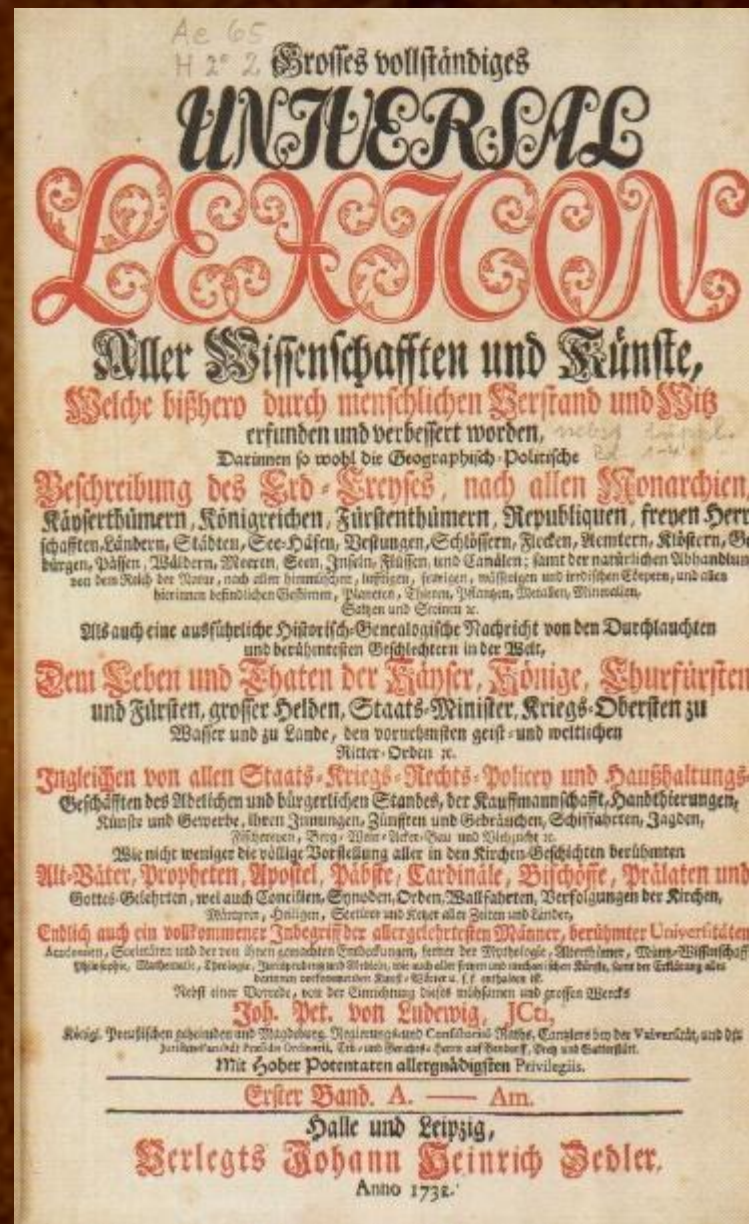 Ae 65
H 2° 2
Grosses vollständiges
UNIVERSAL
LEXICON
Aller Wissenschafften und Künste,
Welche bißhero durch menschlichen Verstand und Witz
erfunden und verbessert worden,
Darinnen so wohl die Geographisch-Politische
Beschreibung des Erd-Creyses, nach allen Monarchien,
Käyserthümern, Königreichen, Fürstenthümern, Republiquen, freyen Herr-
schafften, Ländern, Städten, See-Häfen, Vestungen, Schlössern, Flecken, Aemtern, Klöstern, Ge-
bürgen, Pässen, Wäldern, Meeren, Seen, Inseln, Flüssen, und Canälen; samt der natürlichen Abhandlung
von dem Reich der Natur, nach allen himmlischen, lufftigen, feurigen, wässerigen und irrdischen Cörpern, und allen
hierinnen befindlichen Gestirnen, Planeten, Thieren, Pflantzen, Metallen, Mineralien,
Saltzen und Steinen ꝛc.
Als auch eine ausführliche Historisch-Genealogische Nachricht von den Durchlauchten
und berühmtesten Geschlechtern in der Welt,
Dem Leben und Thaten der Käyser, Könige, Churfürsten
und Fürsten, grosser Helden, Staats-Minister, Kriegs-Obersten zu
Wasser und zu Lande, den vornehmsten geist- und weltlichen
Ritter-Orden ꝛc.
Ingleichen von allen Staats-Kriegs-Rechts-Policey und Haußhaltungs-
Geschäfften des Adelichen und bürgerlichen Standes, der Kauffmannschafft, Handthierungen,
Künste und Gewerbe, ihren Innungen, Zünfften und Gebräuchen, Schiffahrten, Jagden,
Fischereyen, Berg-Wein-Acker-Bau und Viehzucht ꝛc.
Wie nicht weniger die völlige Vorstellung aller in den Kirchen-Geschichten berühmten
Alt-Väter, Propheten, Apostel, Päbste, Cardinäle, Bischöffe, Prälaten und
Gottes-Gelehrten, wie auch Concilien, Synoden, Orden, Wallfahrten, Verfolgungen der Kirchen,
Märtyrer, Heiligen, Sectirer und Ketzer aller Zeiten und Länder,
Endlich auch ein vollkommener Inbegriff der allergelehrtesten Männer, berühmter Universitäten
Academien, Societäten und der von ihnen gemachten Entdeckungen, ferner der Mythologie, Alterthümer, Müntz-Wissenschafft
Philosophie, Mathematic, Theologie, Jurisprudentz und Medicin, wie auch aller freyen und mechanischen Künste, samt der Erklärung aller
darinnen vorkommenden Kunst-Wörter u. s. f. enthalten ist.
Nebst einer Vorrede, von der Einrichtung dieses mühsamen und grossen Wercks
Joh. Pet. von Ludewig, JCti,
Königl. Preußischen geheimden und Magdeburg. Regierungs- und Consistorial-Raths, Cantzlers bey der Universität, und der
Juristen-Facultät Præsidis Ordinarii, Erb- und Gerichts-Herrn auf Bendorff, Pretz und Gatterstätt.
Mit Hoher Potentaten allergnädigsten Privilegiis.
Erster Band. A. — Am.
Halle und Leipzig,
Verlegts Johann Heinrich Zedler.
Anno 1732.